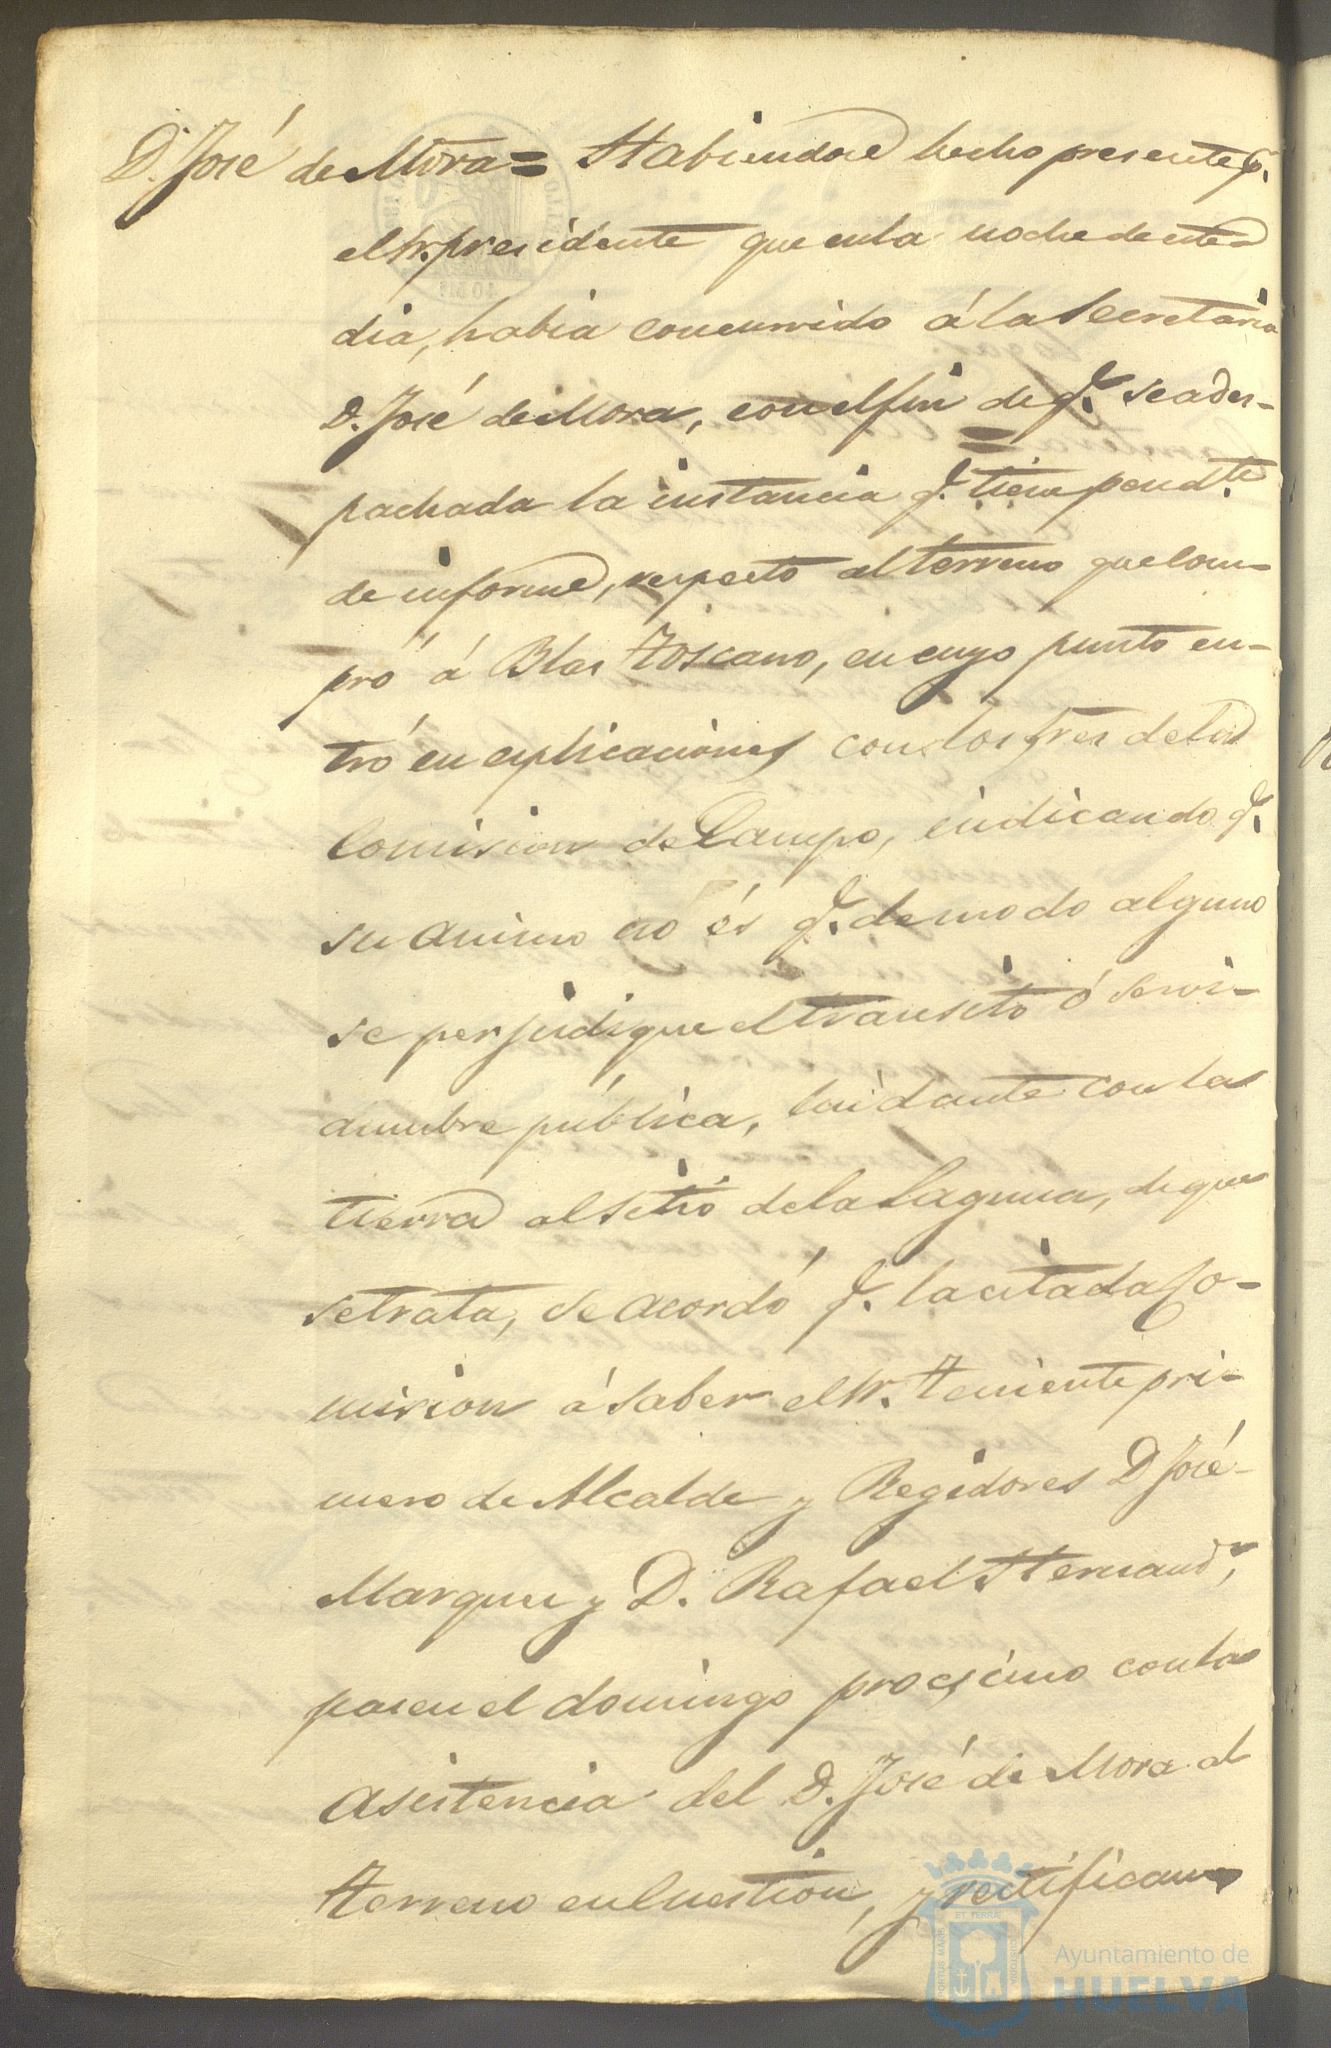 D. José de Mora = Habiendose hecho presente p.r
el Sr. presidente que en la noche de este
dia, habia concurrido á la Secretaria
D. José de Mora, con el fin de q.e sea des-
pachada la instancia q.e tiene pend.te
de informe, respecto al terreno que com-
pró á Blas Toscano, en cuyo punto en-
tró en esplicaciones con los Sres de la
Comision de Campo, indicando q.e
su animo no és q.e de modo alguno
se perjudique el transito ó servi-
dumbre pública, lindante con la
tierra al sitio de la Laguna, de que
se trata, se acordó q.e la citada Co-
mision á saber el Sr. Teniente pri-
mero de Alcalde y Regidores D José
Marquez y D. Rafael Hernand.z
pasen el domingo procsimo con la
asistencia del D. José de Mora al
terreno en cuestion, y rectifican
Ayuntamiento de
HUELVA